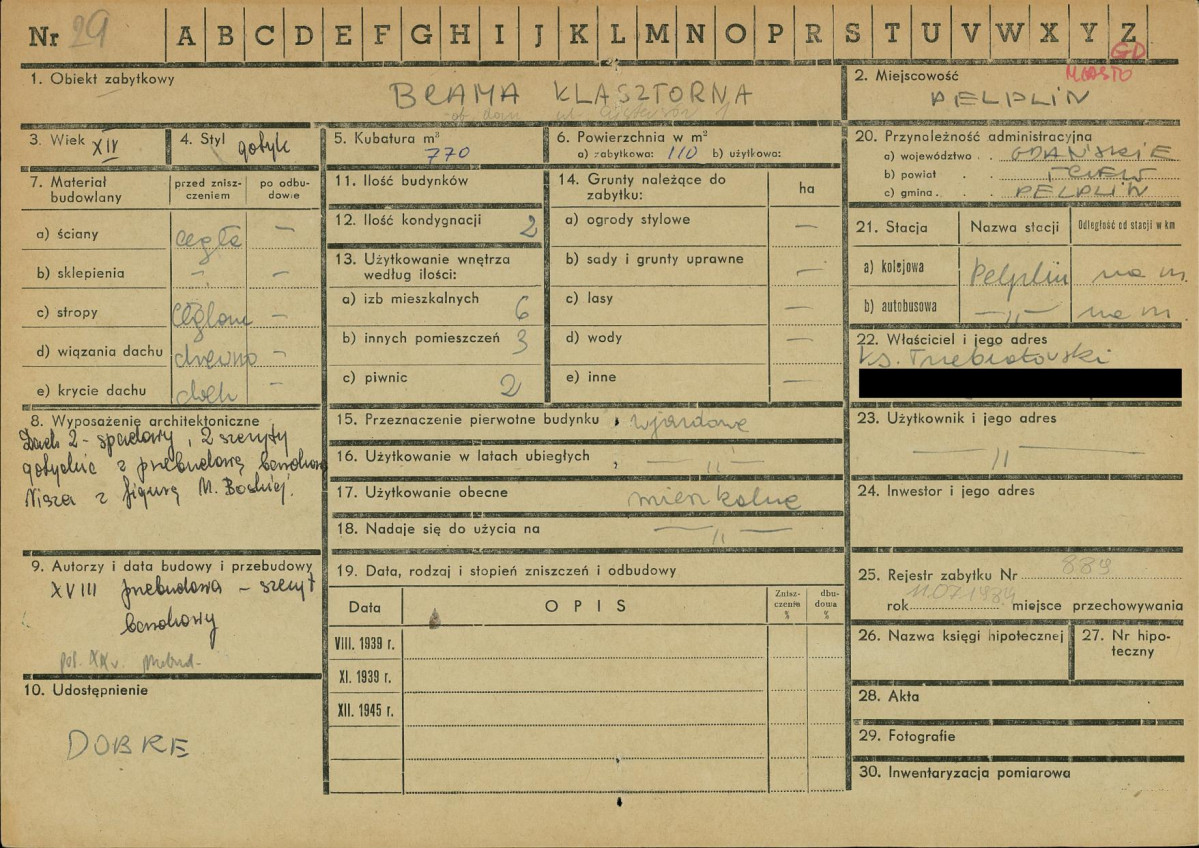 Nr 29 A B C D E F G H I J K L M N O P R S T U V W X Y Z
GD
MIASTO
1. Obiekt zabytkowy
BRAMA KLASZTORNA
2. Miejscowość
PELPLIN
3. Wiek XIV
4. Styl gotyk
5. Kubatura m³
770
6. Powierzchnia w m²
a) zabytkowa: 110 b) użytkowa:
20. Przynależność administracyjna
a) województwo . . GDAŃSKIE
b) powiat . . TCZEW
c) gmina . . PELPLIN
7. Materiał budowlany
przed zniszczeniem
po odbudowie
a) ściany cegła —
b) sklepienia -„- —
c) stropy —
d) wiązania dachu drewno —
e) krycie dachu dach —
11. Ilość budynków
12. Ilość kondygnacji 2
13. Użytkowanie wnętrza według ilości:
a) izb mieszkalnych 6
b) innych pomieszczeń 3
c) piwnic 2
14. Grunty należące do zabytku:
ha
a) ogrody stylowe —
b) sady i grunty uprawne —
c) lasy —
d) wody —
e) inne —
21. Stacja
Nazwa stacji
Odległość od stacji w km
a) kolejowa Pelplin na m.
b) autobusowa —„— na m
22. Właściciel i jego adres
ks. Trzebiatowski
8. Wyposażenie architektoniczne
Dach 2-spadowy, 2 szczyty
gotyckie z przebudową barokową
Nisza z figurą M. Boskiej.
15. Przeznaczenie pierwotne budynku wjazdowe
16. Użytkowanie w latach ubiegłych —„—
17. Użytkowanie obecne mieszkalne
18. Nadaje się do użycia na —„—
23. Użytkownik i jego adres
—„—
24. Inwestor i jego adres
9. Autorzy i data budowy i przebudowy
XVIII przebudowa – szczyt
barokowy
poł. XIX w. przebud.
19. Data, rodzaj i stopień zniszczeń i odbudowy
Data
OPIS
Zniszczenie %
dbudowa %
VIII. 1939 r.
XI. 1939 r.
XII. 1945 r.
25. Rejestr zabytku Nr 889
rok 11.07.1984 miejsce przechowywania
26. Nazwa księgi hipotecznej
27. Nr hipoteczny
10. Udostępnienie
DOBRE
28. Akta
29. Fotografie
30. Inwentaryzacja pomiarowa